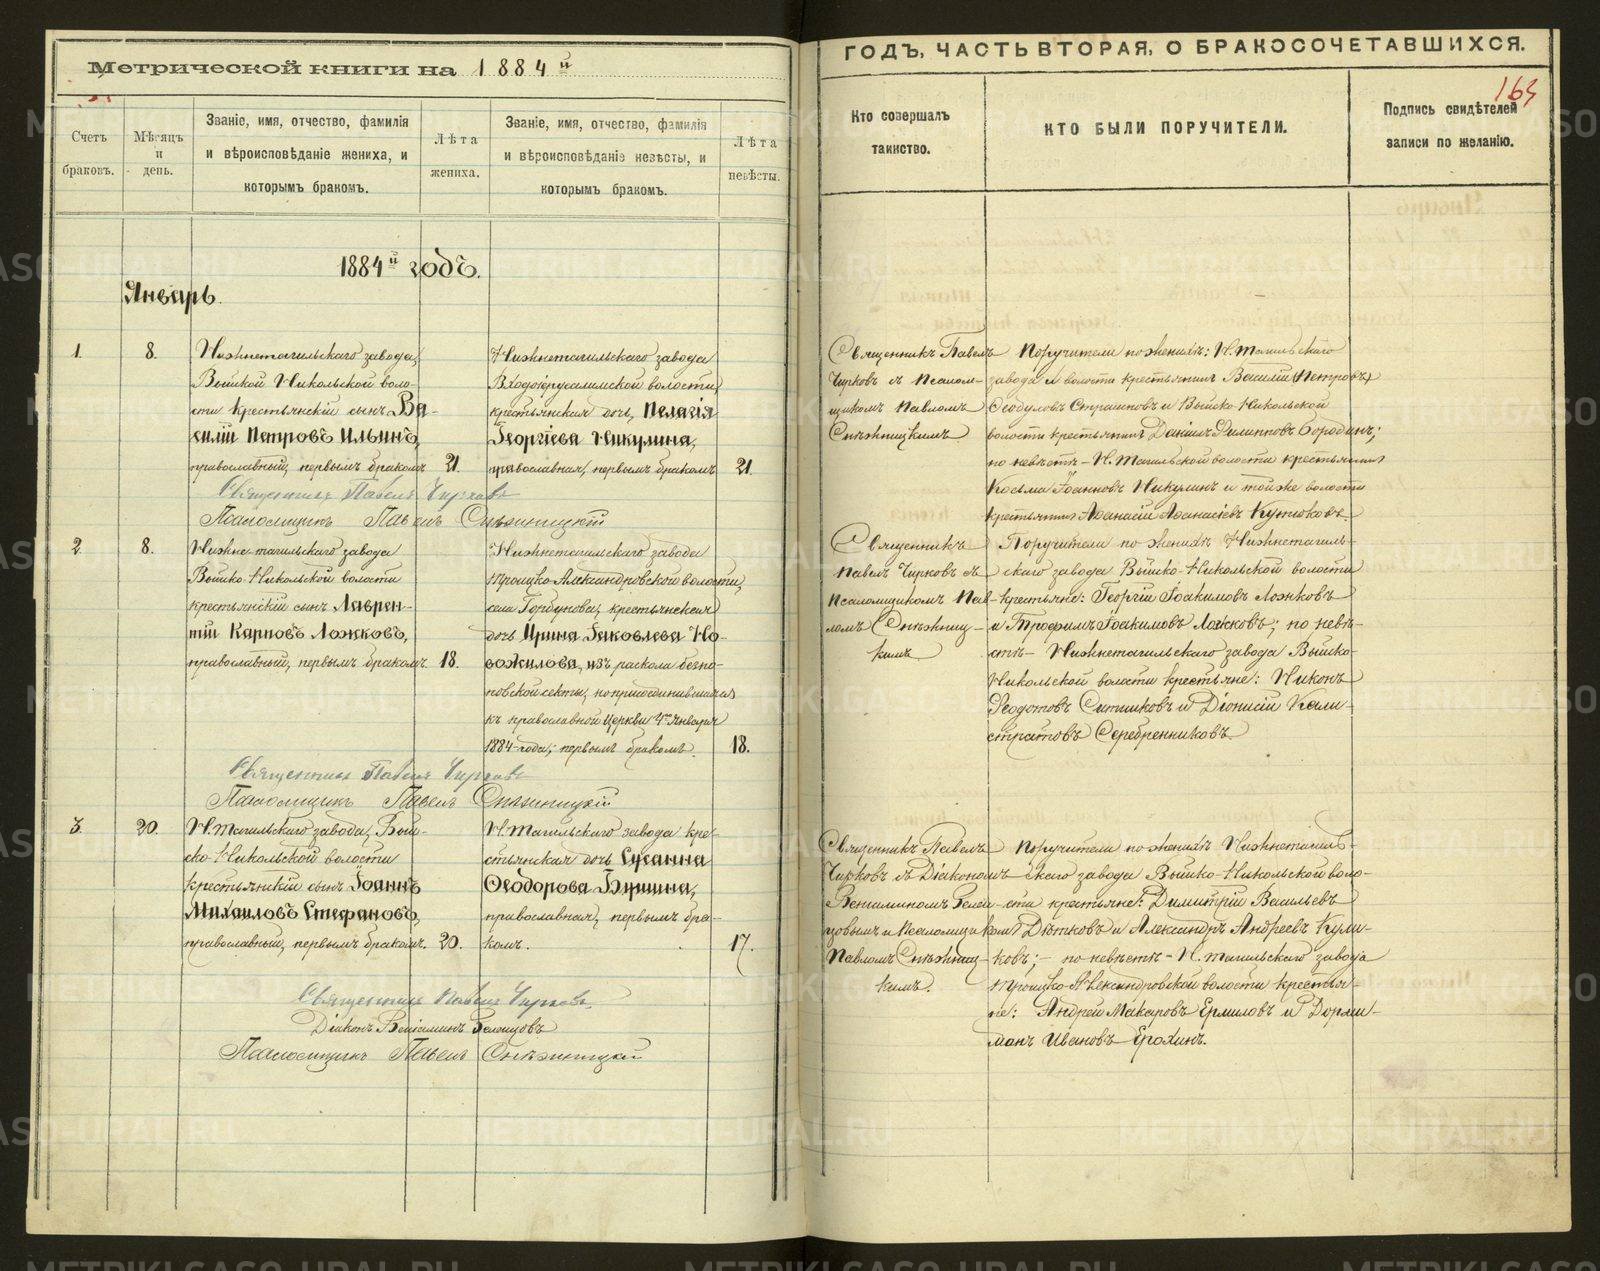 Метрической книги на 1884й
ГОДЪ, ЧАСТЬ ВТОРАЯ, О БРАКОСОЧЕТАВШИХСЯ.
163
Счетъ
браковъ.
Мѣсяцъ
и
день.
Званіе, имя, отчество, фамилія
и вѣроисповѣданіе жениха, и
которымъ бракомъ.
Лѣта
жениха.
Званіе, имя, отчество, фамилія
и вѣроисповѣданіе невѣсты, и
которымъ бракомъ.
Лѣта
невѣсты.
Кто совершалъ
таинство.
КТО БЫЛИ ПОРУЧИТЕЛИ.
Подпись свидѣтелей
записи по желанію.
1884й годъ.
Январь.
1. 8.
Нижнетагильскаго завода,
Выйской Никольской воло-
сти крестьянскій сынъ Ва-
силій Петровъ Ильинъ,
православный, первымъ бракомъ 21.
Нижнетагильскаго завода
Входоіерусалимской волости,
крестьянская дочь, Пелагія
Георгіева Никулина,
православная, первымъ бракомъ 21.
Священникъ Павелъ Чирковъ
Псаломщикъ Павелъ Снѣжницкій
Священникъ Павелъ
Чирковъ съ Псалом-
щикомъ Павломъ
Снѣжницкимъ
Поручители по женихѣ: Н. Тагильскаго
завода и волости крестьянинъ Василій Петровъ,
Ѳеодуловъ Страшновъ и Выйско-Никольской
волости крестьянинъ Даніилъ Филипповъ Бородинъ;
по невѣстѣ - Н. Тагильской волости крестьянинъ
Косьма Іоанновъ Никулинъ и тойже волости
крестьянинъ Аѳанасій Аѳанасіевъ Кутюковъ.
2. 8.
Нижне-тагильскаго завода
Выйско-Никольской волости
крестьянскій сынъ Лаврен-
тій Карповъ Ложковъ,
православный, первымъ бракомъ 18.
Нижнетагильскаго завода
Троицко-Александровской волости,
села Горбунова, крестьянская
дочь Ирина Іаковлева Но-
вожилова, изъ раскола безпо-
повской секты, но присоединившаяся
къ православной церкви 4го января
1884 года, первымъ бракомъ. 18.
Священникъ Павелъ Чирковъ
Псаломщикъ Павелъ Снѣжницкій
Священникъ
Павелъ Чирковъ съ
Псаломщикомъ Пав-
ломъ Снѣжниц-
кимъ
Поручители по женихѣ Нижнетагиль-
скаго завода Выйско-Никольской волости
крестьяне: Георгій Іоакимовъ Ложковъ
и Трофимъ Іоакимовъ Ложковъ; по невѣ-
стѣ - Нижнетагильскаго завода Выйско-
Никольской волости крестьяне: Никонъ
Ѳеодотовъ Ситниковъ и Діонисій Кали-
стратовъ Серебренниковъ.
3. 20.
Н. Тагильскаго завода, Вый-
ско-Никольской волости
крестьянскій сынъ Іоаннъ
Михаиловъ Стефановъ,
православный, первымъ бракомъ. 20.
Н. Тагильскаго завода кре-
стьянская дочь Сусанна
Ѳеодорова Бушина,
православная, первымъ бра-
комъ. 17.
Священникъ Павелъ Чирковъ.
Діаконъ Веніаминъ Гелецовъ
Псаломщикъ Павелъ Снѣжницкій
Священникъ Павелъ
Чирковъ съ Діакономъ
Веніаминомъ Геле-
цовымъ и Псаломщикомъ
Павломъ Снѣжниц-
кимъ.
Поручители по женихѣ Нижнетагиль-
скаго завода Выйско-Никольской воло-
сти крестьяне: Димитрій Васильевъ
Дѣтковъ и Александръ Андреевъ Кули-
ковъ; - по невѣстѣ - Н. Тагильскаго завода
Троицко-Александровской волости крестья-
не: Андрей Макаровъ Ермиловъ и Дорми-
донъ Ивановъ Ерохинъ.
METRIKI.GASO-URAL.RU